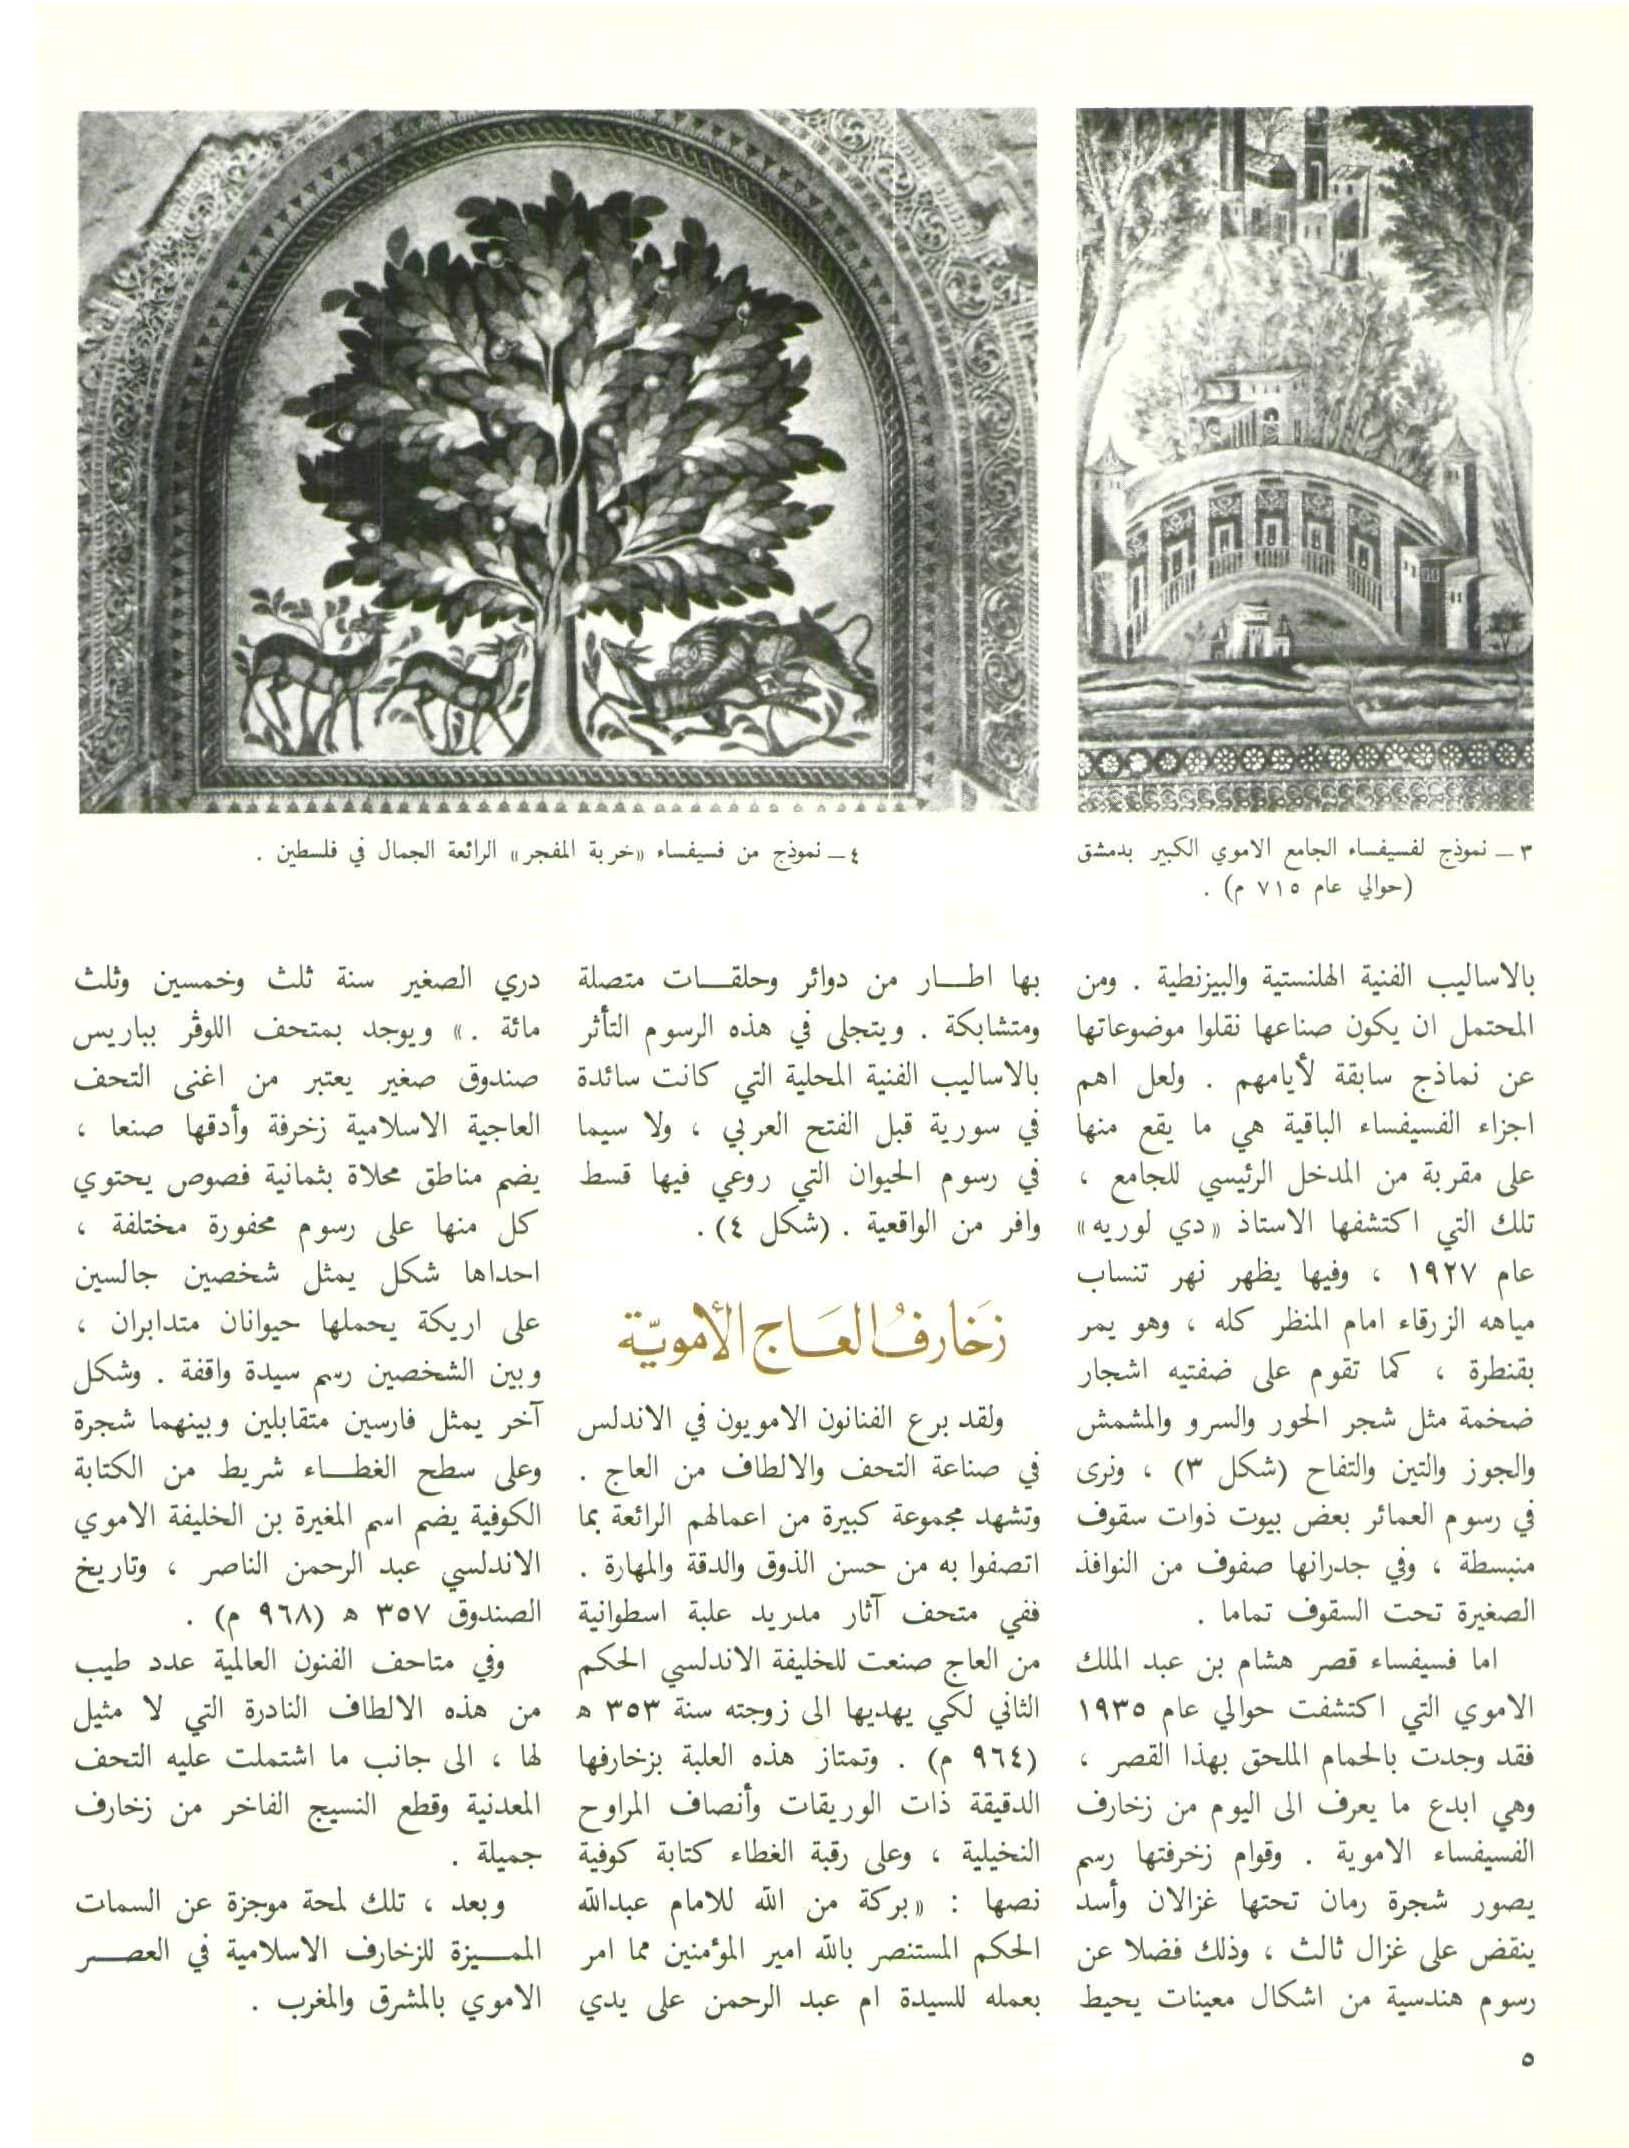 ٣ ــ نموذج لفسيفساء الجامع الاموي الكبير بدمشق
(حوالي عام ٧١٥ م) .
٤ ــ نموذج من فسيفساء «خربة المفجر» الرائعة الجمال في فلسطين .
بالاساليب الفنية الهلنستية والبيزنطية . ومن
المحتمل ان يكون صناعها نقلوا موضوعاتها
عن نماذج سابقة لأيامهم . ولعل اهم
اجزاء الفسيفساء الباقية هي ما يقع منها
على مقربة من المدخل الرئيسي للجامع ،
تلك التي اكتشفها الاستاذ «دي لوريه»
عام ١٩٢٧ ، وفيها يظهر نهر تنساب
مياهه الزرقاء امام المنظر كله ، وهو يمر
بقنطرة ، كما تقوم على ضفتيه اشجار
ضخمة مثل شجر الحور والسرو والمشمش
والجوز والتين والتفاح (شكل ٣) ، ونرى
في رسوم العمائر بعض بيوت ذوات سقوف
منبسطة ، وفي جدرانها صفوف من النوافذ
الصغيرة تحت السقوف تماما .
اما فسيفساء قصر هشام بن عبد الملك
الاموي التي اكتشفت حوالي عام ١٩٣٥
فقد وجدت بالحمام الملحق بهذا القصر ،
وهي ابدع ما يعرف الى اليوم من زخارف
الفسيفساء الاموية . وقوام زخرفتها رسم
يصور شجرة رمان تحتها غزالان وأسد
ينقض على غزال ثالث ، وذلك فضلا عن
رسوم هندسية من اشكال معينات يحيط
بها اطــار من دوائر وحلقــات متصلة
ومتشابكة . ويتجلى في هذه الرسوم التأثر
بالاساليب الفنية المحلية التي كانت سائدة
في سورية قبل الفتح العربي ، ولا سيما
في رسوم الحيوان التي روعي فيها قسط
وافر من الواقعية . (شكل ٤) .
زَخارفُ العَاج الأمويّة
ولقد برع الفنانون الامويون في الاندلس
في صناعة التحف والالطاف من العاج .
وتشهد مجموعة كبيرة من اعمالهم الرائعة بما
اتصفوا به من حسن الذوق والدقة والمهارة .
ففي متحف آثار مدريد علبة اسطوانية
من العاج صنعت للخليفة الاندلسي الحكم
الثاني لكي يهديها الى زوجته سنة ٣٥٣ ه
(٩٦٤ م) . وتمتاز هذه العلبة بزخارفها
الدقيقة ذات الوريقات وأنصاف المراوح
النخيلية ، وعلى رقبة الغطاء كتابة كوفية
نصها : «بركة من الله للامام عبدالله
الحكم المستنصر بالله امير المؤمنين مما امر
بعمله للسيدة ام عبد الرحمن على يدي
دري الصغير سنة ثلث وخمسين وثلث
مائة .» ويوجد بمتحف اللوڤر بباريس
صندوق صغير يعتبر من اغنى التحف
العاجية الاسلامية زخرفة وأدقها صنعا ،
يضم مناطق محلاة بثمانية فصوص يحتوي
كل منها على رسوم محفورة مختلفة ،
احداها شكل يمثل شخصين جالسين
على اريكة يحملها حيوانان متدابران ،
وبين الشخصين رسم سيدة واقفة . وشكل
آخر يمثل فارسين متقابلين وبينهما شجرة
وعلى سطح الغطــاء شريط من الكتابة
الكوفية يضم اسم المغيرة بن الخليفة الاموي
الاندلسي عبد الرحمن الناصر ، وتاريخ
الصندوق ٣٥٧ ه (٩٦٨ م) .
وفي متاحف الفنون العالمية عدد طيب
من هذه الالطاف النادرة التي لا مثيل
لها ، الى جانب ما اشتملت عليه التحف
المعدنية وقطع النسيج الفاخر من زخارف
جميلة .
وبعد ، تلك لمحة موجزة عن السمات
المميــزة للزخارف الاسلامية في العصــر
الاموي بالمشرق والمغرب .
٥